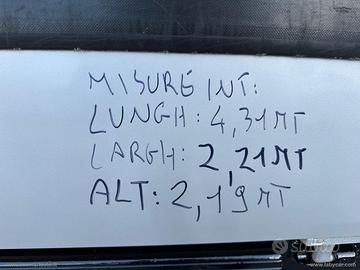 MISURE INT:
LUNGH: 4,31 MT
LARGH: 2,21 MT
ALT: 2,19 MT
subito
www.labycar.com